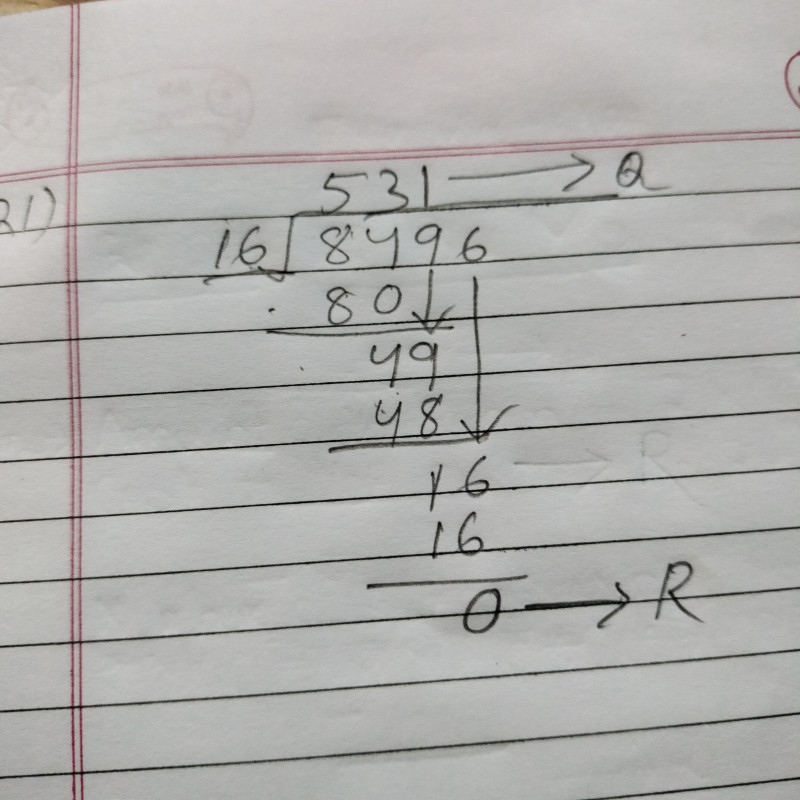 21)
531 → Q
16 8496
80
49
48
16 → R
16
0 → R